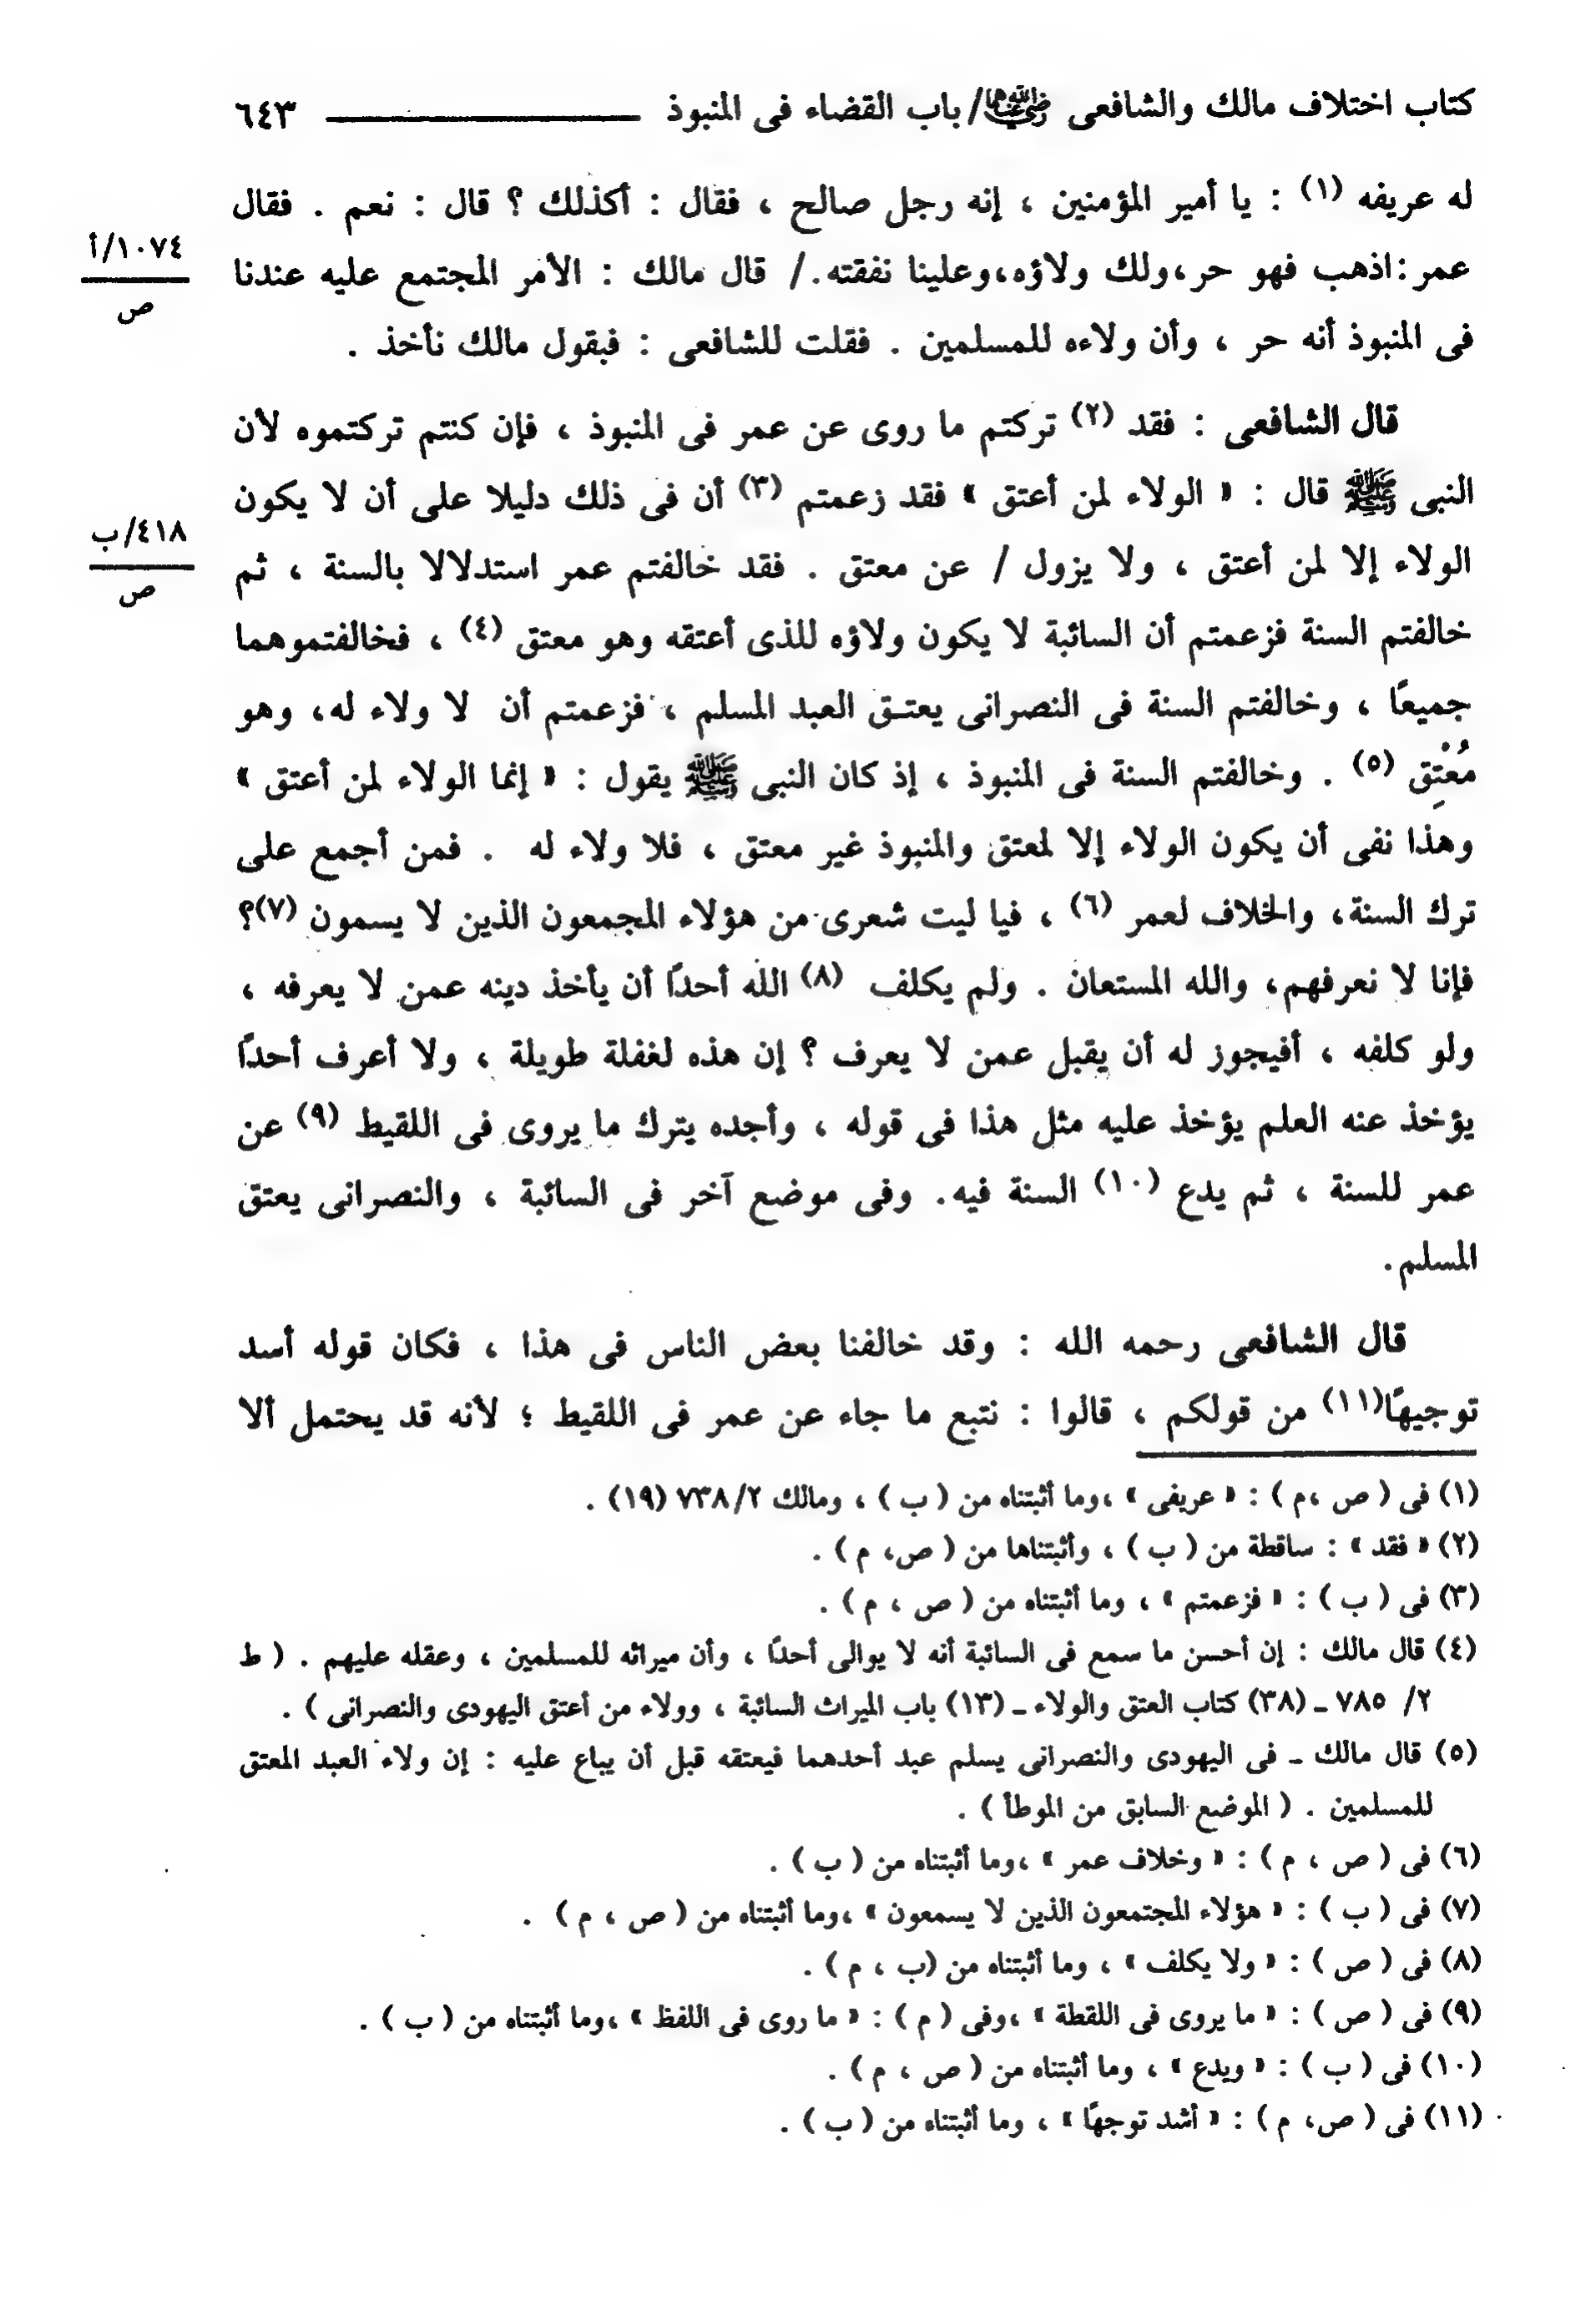 كتاب اختلاف مالك والشافعى رضي الله عنهما/ باب القضاء فى المنبوذ ــــــــــــــ ٦٤٣
له عريفه (١) : يا أمير المؤمنين ، إنه رجل صالح ، فقال : أكذلك ؟ قال : نعم . فقال
١٠٧٤/أ
ص
عمر :اذهب فهو حر،ولك ولاؤه،وعلينا نفقته./ قال مالك : الأمر المجتمع عليه عندنا
فى المنبوذ أنه حر ، وأن ولاءه للمسلمين . فقلت للشافعى : فبقول مالك نأخذ .
قال الشافعى : فقد (٢) تركتم ما روى عن عمر فى المنبوذ ، فإن كنتم تركتموه لأن
النبى ﷺ قال : « الولاء لمن أعتق » فقد زعمتم (٣) أن فى ذلك دليلا على أن لا يكون
٤١٨/ب
ص
الولاء إلا لمن أعتق ، ولا يزول / عن معتق . فقد خالفتم عمر استدلالا بالسنة ، ثم
خالفتم السنة فزعمتم أن السائبة لا يكون ولاؤه للذى أعتقه وهو معتق (٤) ، فخالفتموهما
جميعًا ، وخالفتم السنة فى النصرانى يعتـق العبد المسلم ، فزعمتم أن لا ولاء له، وهو
مُعْتِق (٥) . وخالفتم السنة فى المنبوذ ، إذ كان النبى ﷺ يقول : « إنما الولاء لمن أعتق »
وهذا نفى أن يكون الولاء إلا لمعتق والمنبوذ غير معتق ، فلا ولاء له . فمن أجمع على
ترك السنة، والخلاف لعمر (٦) ، فيا ليت شعرى من هؤلاء المجمعون الذين لا يسمون (٧)؟
فإنا لا نعرفهم، والله المستعان . ولم يكلف (٨) الله أحدًا أن يأخذ دينه عمن لا يعرفه ،
ولو كلفه ، أفيجوز له أن يقبل عمن لا يعرف ؟ إن هذه لغفلة طويلة ، ولا أعرف أحدًا
يؤخذ عنه العلم يؤخذ عليه مثل هذا فى قوله ، وأجده يترك ما يروى فى اللقيط (٩) عن
عمر للسنة ، ثم يدع (١٠) السنة فيه. وفى موضع آخر فى السائبة ، والنصرانى يعتق
المسلم.
قال الشافعى رحمه الله : وقد خالفنا بعض الناس فى هذا ، فكان قوله أسد
توجيهًا(١١) من قولكم ، قالوا : نتبع ما جاء عن عمر فى اللقيط ؛ لأنه قد يحتمل ألا
(١) فى ( ص ،م ) : « عريفى » ،وما أثبتناه من ( ب ) ، ومالك ٧٣٨/٢ (١٩) .
(٢) « فقد » : ساقطة من ( ب ) ، وأثبتناها من ( ص، م ) .
(٣) فى ( ب ) : « فزعمتم » ، وما أثبتناه من ( ص ، م ) .
(٤) قال مالك : إن أحسن ما سمع فى السائبة أنه لا يوالى أحدًا ، وأن ميراثه للمسلمين ، وعقله عليهم . ( ط
٢/ ٧٨٥ ـ (٣٨) كتاب العتق والولاء ـ (١٣) باب الميراث السائبة ، وولاء من أعتق اليهودى والنصرانى ) .
(٥) قال مالك ـ فى اليهودى والنصرانى يسلم عبد أحدهما فيعتقه قبل أن يباع عليه : إن ولاء العبد المعتق
للمسلمين . ( الموضع السابق من الموطأ ) .
(٦) فى ( ص ، م ) : « وخلاف عمر » ،وما أثبتناه من ( ب ) .
(٧) فى ( ب ) : « هؤلاء المجتمعون الذين لا يسمعون » ،وما أثبتناه من ( ص ، م ) .
(٨) فى ( ص ) : « ولا يكلف » ، وما أثبتناه من (ب ، م ) .
(٩) فى ( ص ) : « ما يروى فى اللقطة » ،وفى ( م ) : « ما روى فى اللفظ » ،وما أثبتناه من ( ب ) .
(١٠) فى ( ب ) : « ويدع » ، وما أثبتناه من ( ص ، م ) .
(١١) فى ( ص، م ) : « أشد توجهًا » ، وما أثبتناه من ( ب ) .